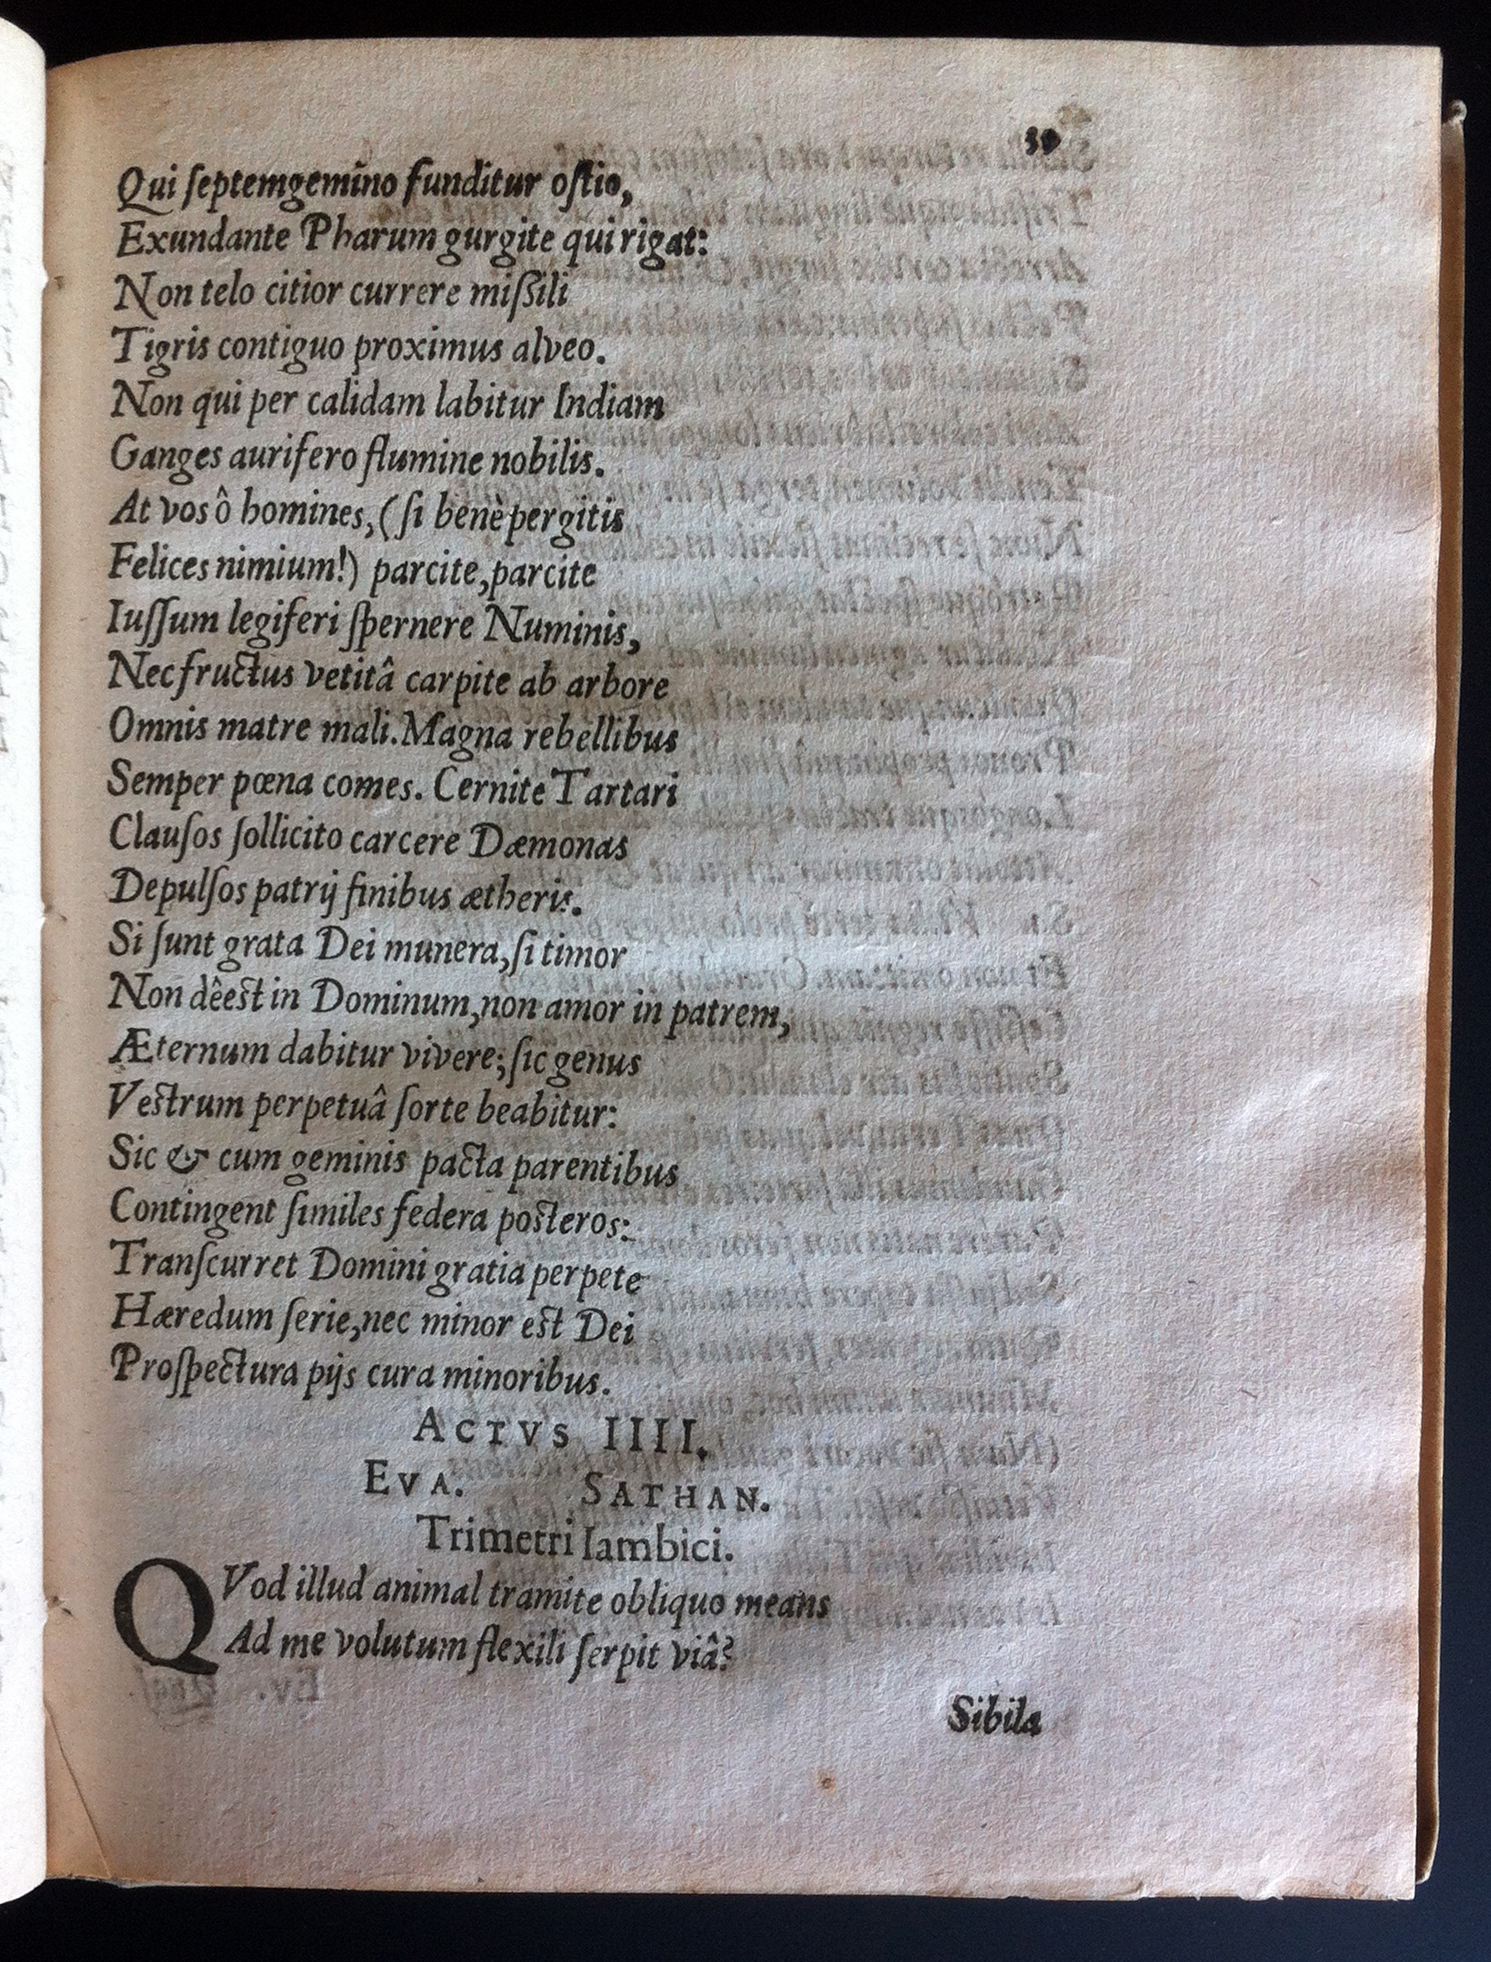 Qui ſeptemgemino funditur oſtio,
Exundante Pharum gurgite qui rigat:
Non telo citior currere miſſili
Tigris contiguo proximus alveo.
Non qui per calidam labitur Indiam
Ganges aurifero flumine nobilis.
At vos ô homines, (ſi benè pergitis
Felices nimium!) parcite, parcite
Iuſſum legiferi ſpernere Numinis,
Nec fructus vetitâ carpite ab arbore
Omnis matre mali. Magna rebellibus
Semper pœna comes. Cernite Tartari
Clauſos ſollicito carcere Dæmonas
Depulſos patrij finibus ætheris.
Si ſunt grata Dei munera, ſi timor
Non dêest in Dominum, non amor in patrem,
Æternum dabitur vivere; ſic genus
Vestrum perpetuâ ſorte beabitur:
Sic & cum geminis pacta parentibus
Contingent ſimiles federa posteros:
Tranſcurret Domini gratia perpete
Hæredum ſerie, nec minor est Dei
Proſpectura pijs cura minoribus.
ACTVS IIII.
EVA. SATHAN.
Trimetri Iambici.
QVod illud animal tramite obliquo means
Ad me volutum flexili ſerpit viâ?
Sibila